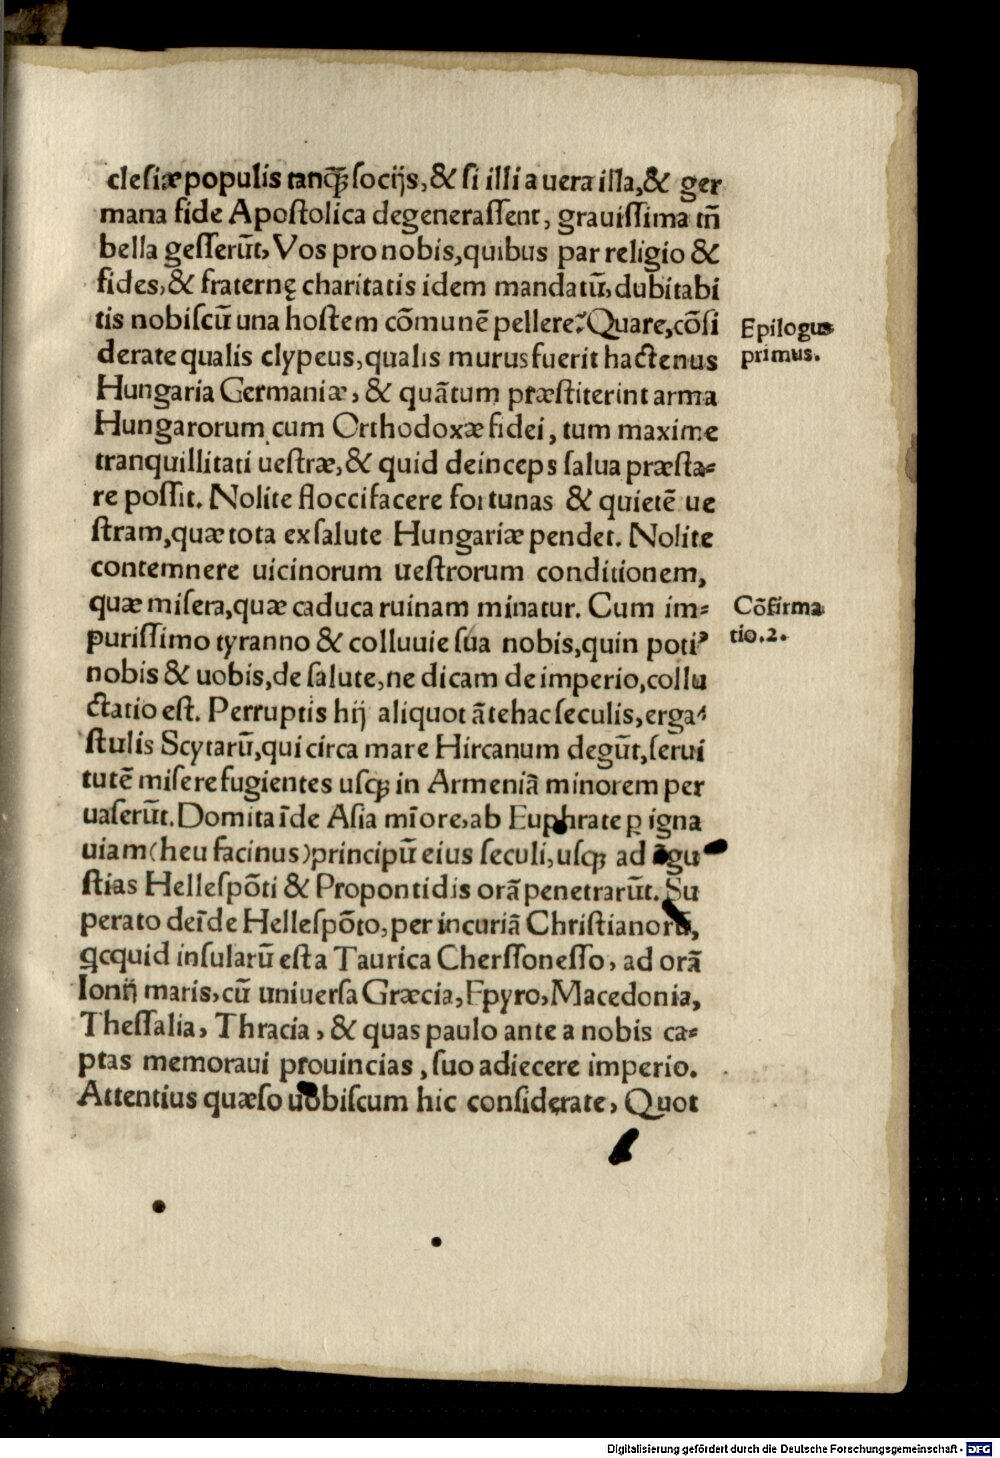 clesiæ populis tanq̃ꝫ socijs, & si illi a uera illa, & ger
mana fide Apostolica degenerassent, grauissima tñ
bella gesserũt, Vos pro nobis, quibus par religio &
fides, & fraternę charitatis idem mandatũ, dubitabi
tis nobiscũ una hostem cõmunẽ pellere? Quare, cõsi
derate qualis clypeus, qualis murus fuerit hactenus
Hungaria Germaniæ, & quãtum præstiterint arma
Hungarorum cum Orthodoxæ fidei, tum maxime
tranquillitati uestræ, & quid deinceps salua præsta⸗
re possit. Nolite floccifacere fortunas & quietẽ ue
stram, quæ tota ex salute Hungariæ pendet. Nolite
contemnere uicinorum uestrorum conditionem,
quæ misera, quæ caduca ruinam minatur. Cum im⸗
purissimo tyranno & colluuie sua nobis, quin potiꝰ
nobis & uobis, de salute, ne dicam de imperio, collu
ctatio est. Perruptis hij aliquot ãtehac seculis, erga⸗
stulis Scytarũ, qui circa mare Hircanum degũt, serui
tutẽ misere fugientes usqꝫ in Armeniã minorem per
uaserũt. Domita ĩde Asia mĩore, ab Euphrate ꝑ igna
uiam (heu facinus) principũ eius seculi, usqꝫ ad ãgu
stias Hellespõti & Propontidis orã penetrarũt. Su
perato deĩde Hellespõto, per incuriã Christianorũ,
qcquid insularũ est a Taurica Cherssonesso, ad orã
Ionij maris, cũ uniuersa Græcia, Epyro, Macedonia,
Thessalia, Thracia, & quas paulo ante a nobis ca⸗
ptas memoraui prouincias, suo adiecere imperio.
Attentius quæso uobiscum hic considerate, Quot
Epilogus
primus.
Cõfirma
tio. 2.
Digitalisierung gefördert durch die Deutsche Forschungsgemeinschaft - DFG